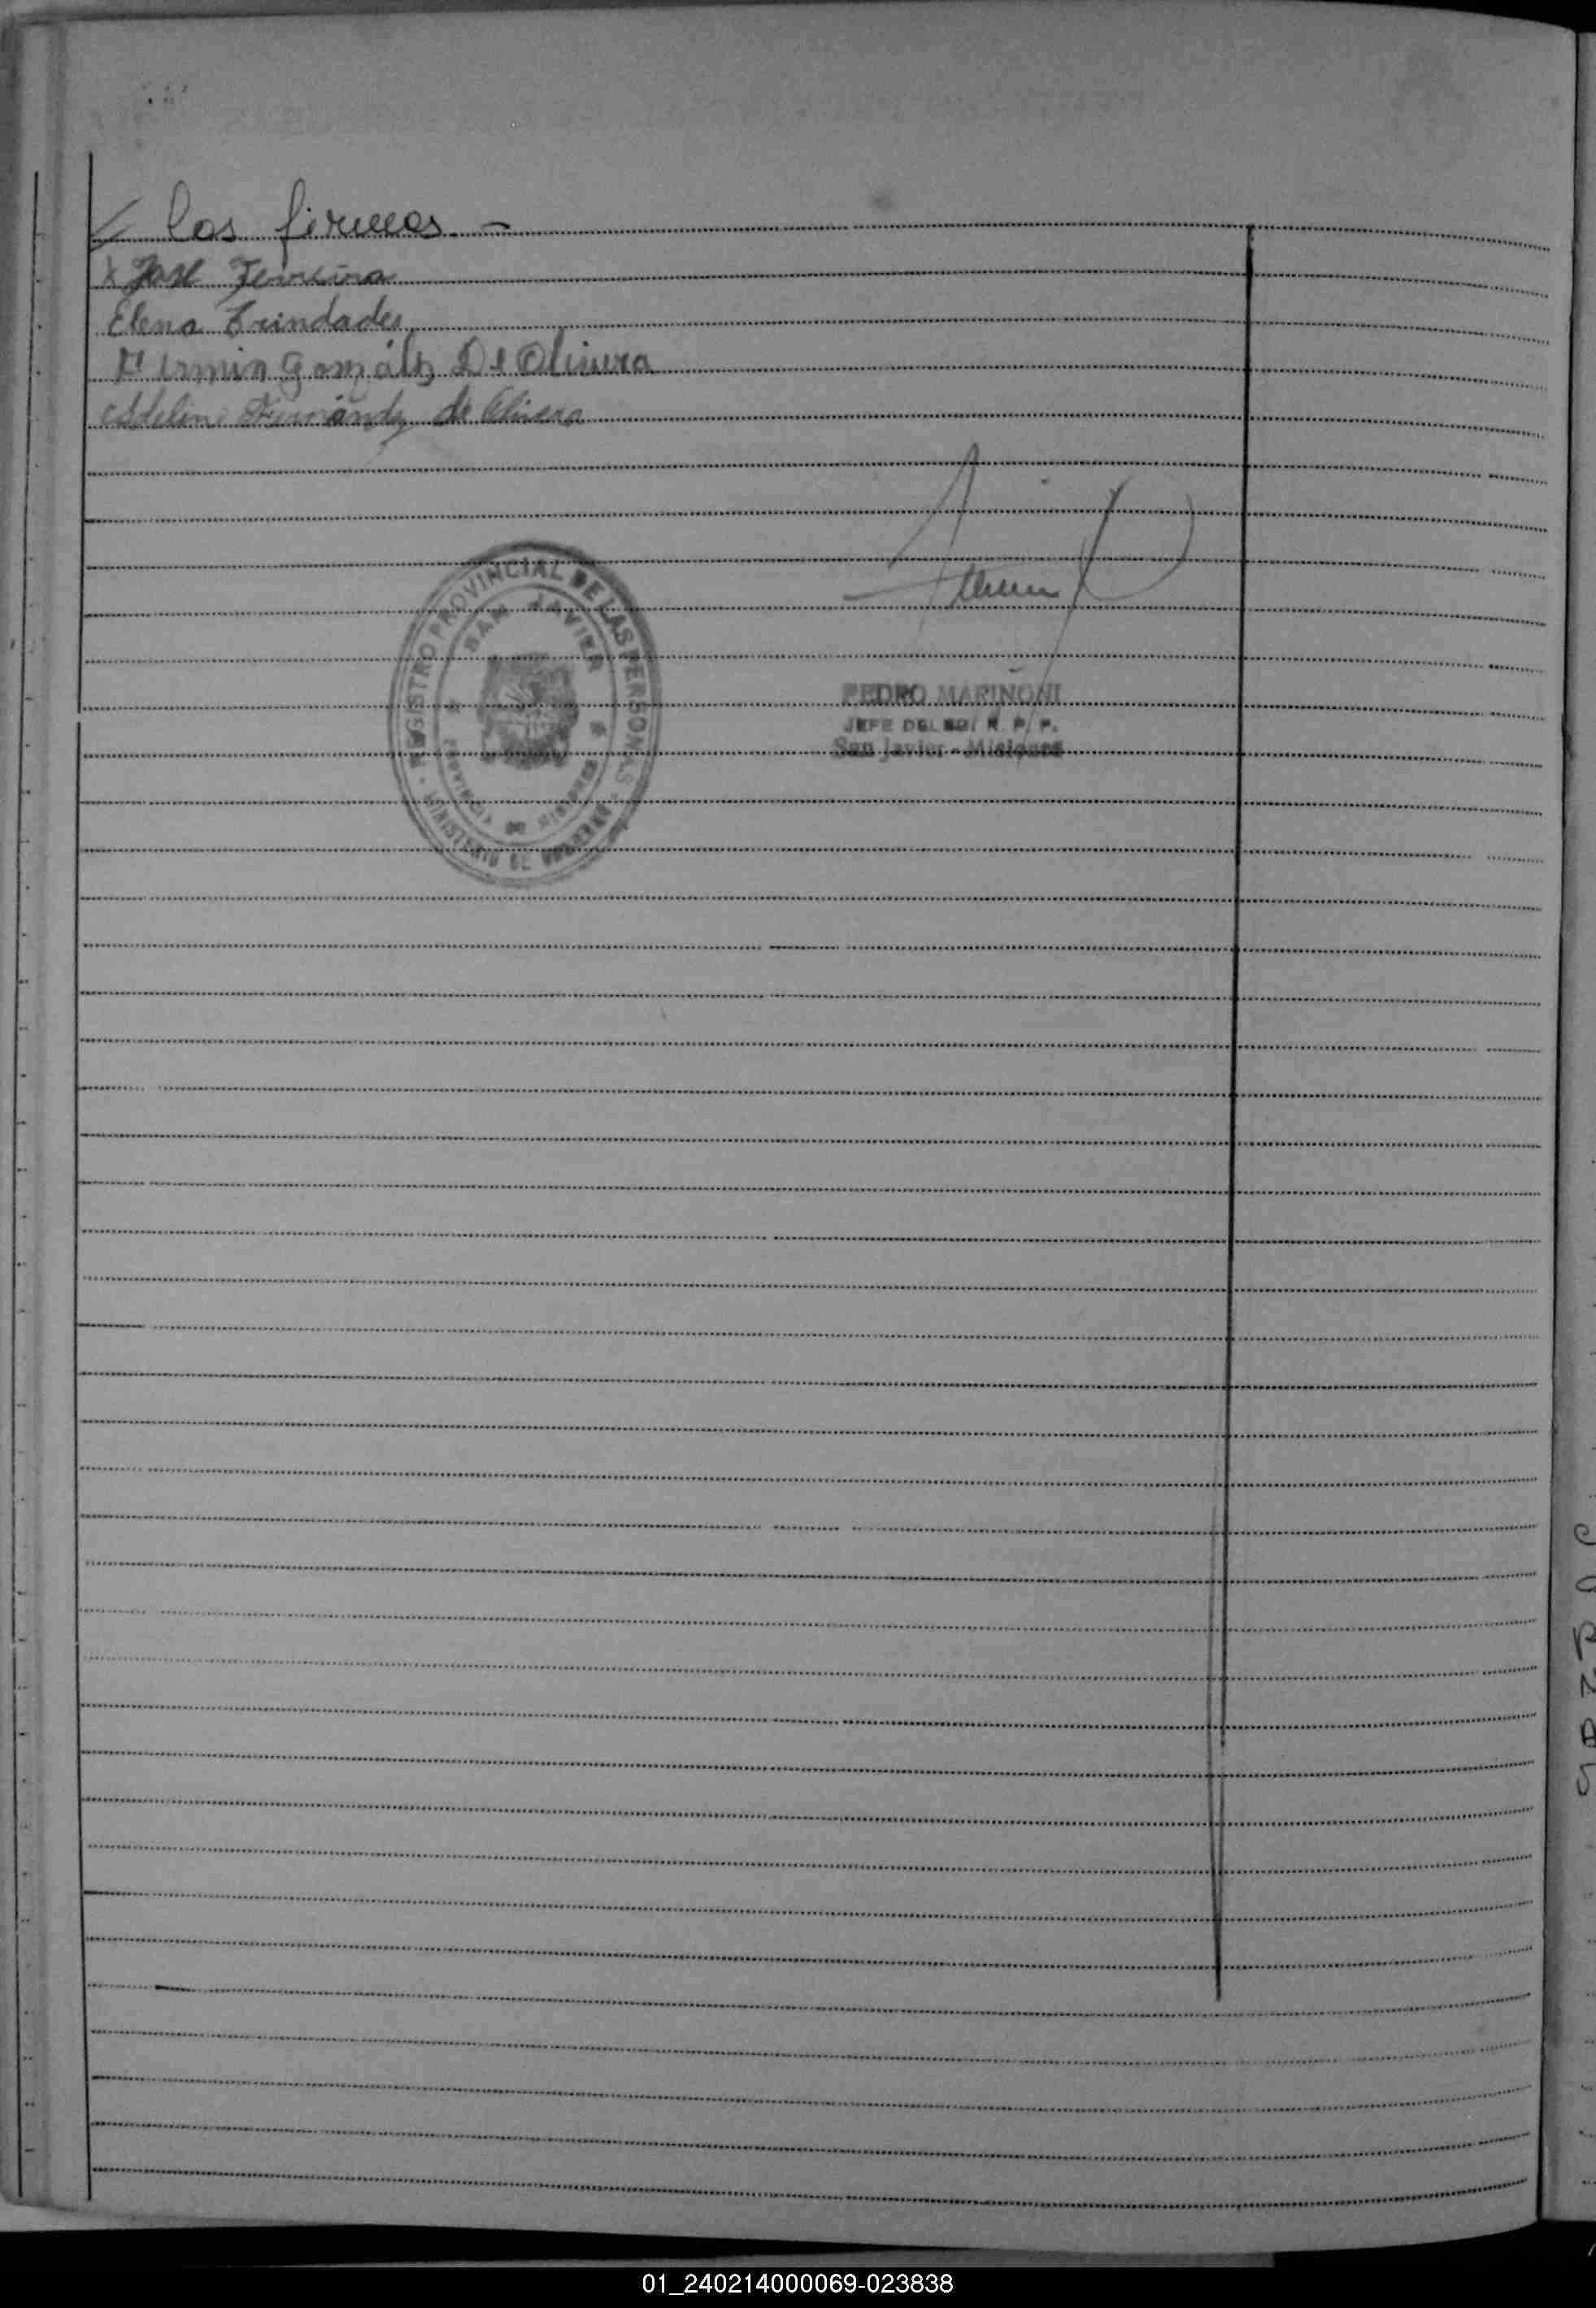 las firmas. -
x José Ferreira
Elena Trindades
Fermin Gonzáles De Olivera
Adelina Fernández de Olivera
REGISTRO PROVINCIAL DE LAS PERSONAS
SAN JAVIER
PROVINCIA DE MISIONES
MINISTERIO DE GOBIERNO
PEDRO MARINONI
JEFE DEL R. P. P.
San Javier - Misiones
01_240214000069-023838